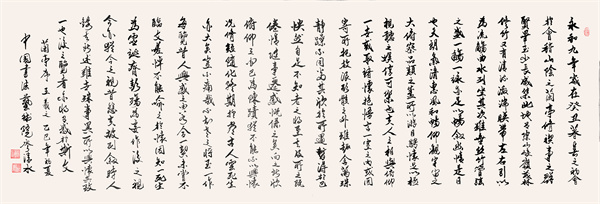 永和九年歲在癸丑暮春之初會
於會稽山陰之蘭亭脩稧事也羣
賢畢至少長咸集此地有崇山峻領茂林
脩竹又有清流激湍映帶左右引以
為流觴曲水列坐其次雖無絲竹管弦
之盛一觴一詠亦足以暢敘幽情是日
也天朗氣清惠風和暢仰觀宇宙之
大俯察品類之盛所以遊目騁懷足以極
視聽之娛信可樂也夫人之相與俯仰
一世或取諸懷抱悟言一室之內或因
寄所託放浪形骸之外雖趣舍萬殊
靜躁不同當其欣於所遇暫得於己
怏然自足不知老之將至及其所之既
倦情隨事遷感慨係之矣向之所欣
俛仰之間已為陳迹猶不能不以之興懷
況脩短隨化終期於盡古人云死生
亦大矣豈不痛哉
每攬昔人興感之由若合一契未嘗不
臨文嗟悼不能喻之於懷固知一死生
為虛誕齊彭殤為妄作後之視
今亦由今之視昔悲夫故列敘時人
錄其所述雖世殊事異所以興懷其致
一也後之攬者亦將有感於斯文
蘭亭序王羲之
中國書法藝術院